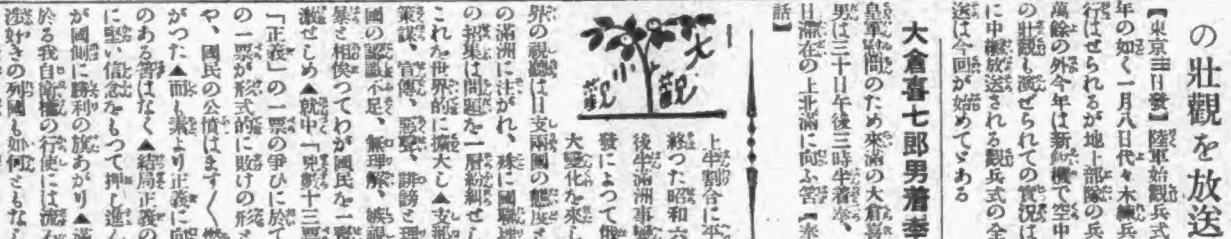 の壯觀を放送
【東京三日發】陸軍始觀兵式
年の如く一月八日代々木練兵
行はせられるが地上部隊の兵
萬餘の外今年は新鋭機で空中
の壯觀も演ぜられての實況は
に中繼放送される觀兵式の全
送は今回が始めてゞある
大倉喜七郎男着奉
皇軍慰問のため來滿の大倉喜
男は三十日午後三時半着奉、
日滯在の上北滿に向ふ筈【奉
話】
大觀
小觀
上半割合に平
終つた昭和六
後半滿洲事變
發によつて俄
大變化を來し
界の視聽は日支兩國の態度
の滿洲に注がれ、殊に國聯
の招集は問題を一層紛糾せし
これを世界的に擴大し▲支那
策謀、宣傳、惡罵、誹謗と理
國の認識不足、無理解、嫉視
暴と相俟つてわが國民を一層
激せしめ▲就中「兇數十三票
「正義」の一票の爭ひに於て
の一票が形式的に敗けの形
や、國民の公憤はます〱
がつた▲而も素より正義に向
のある筈はなく▲結局正義の
に堅い信念をもつて押し進ん
が國側に勝利の旗あがり▲滿
於る我自衛權の行使には流石
好きの列國も如何ともなし